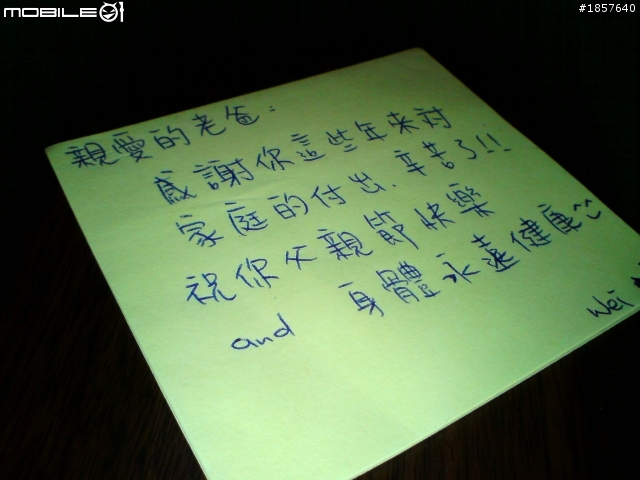 MOBILE01
#1857640
親愛的老爸：
感謝你這些年來對
家庭的付出．辛苦了!!
祝你父親節快樂
and 身體永遠健康^^
Wei